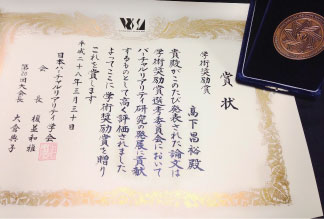 賞状
学術奨励賞
高下昌裕殿
貴殿がこのたび発表された論文は
学術奨励賞選考委員会において
バーチャルリアリティ研究の発展に貢献
するものとして高く評価されました
よってここに学術奨励賞を贈り
これを賞します
平成二十八年三月三十日
日本バーチャルリアリティ学会
会長 植並和雅
第20回大会長 大倉典子